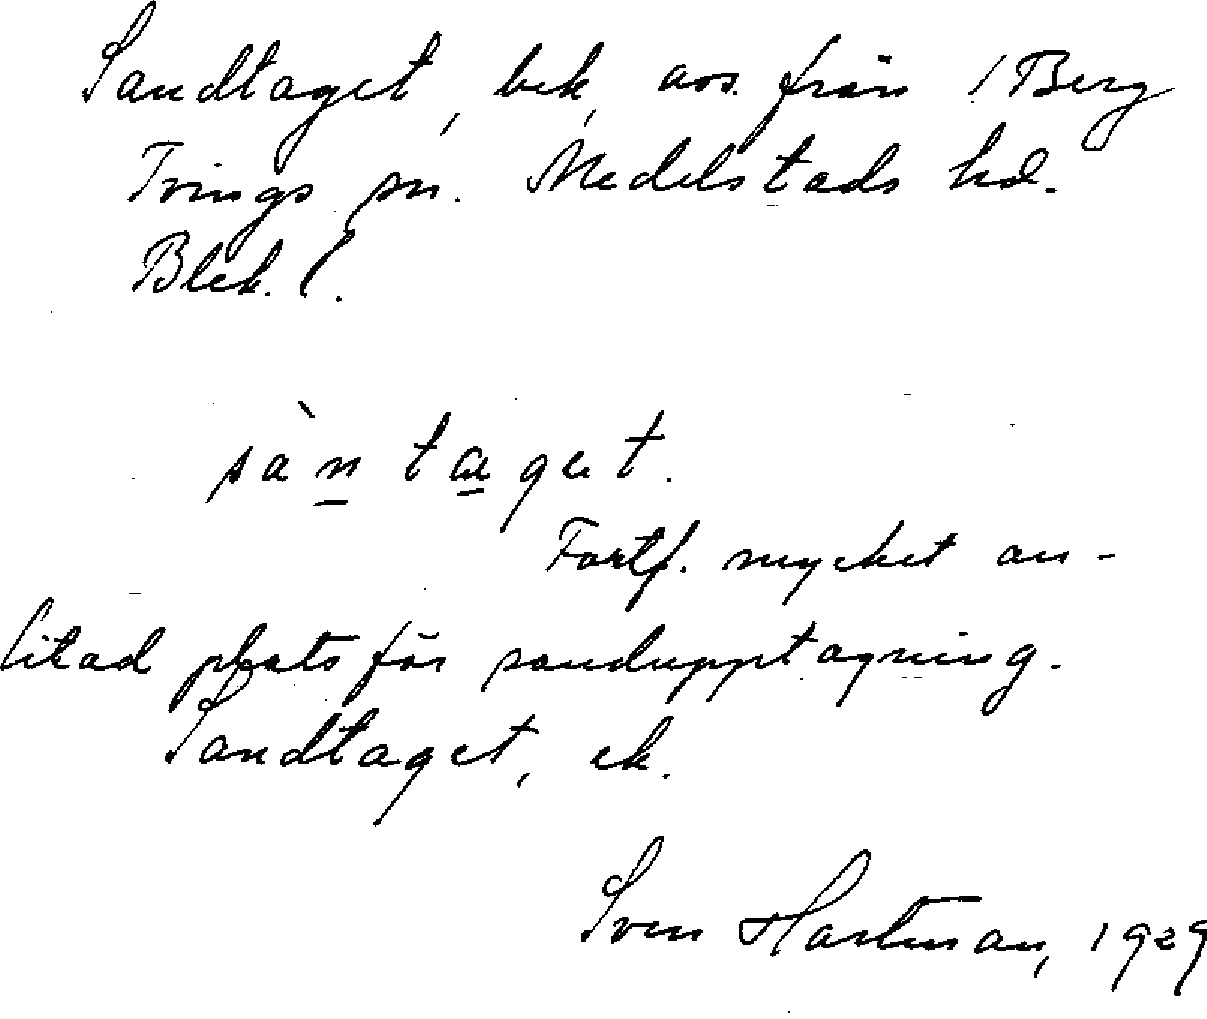 Sandtaget, bek, avs. från 1 Berg
Tvings sn. Medelstads hd.
Blek. l.
sàn taget.
Fortf. mycket an-
litad plats för sandupptagning.
Sandtaget, ek.
Sven Hartman, 1929